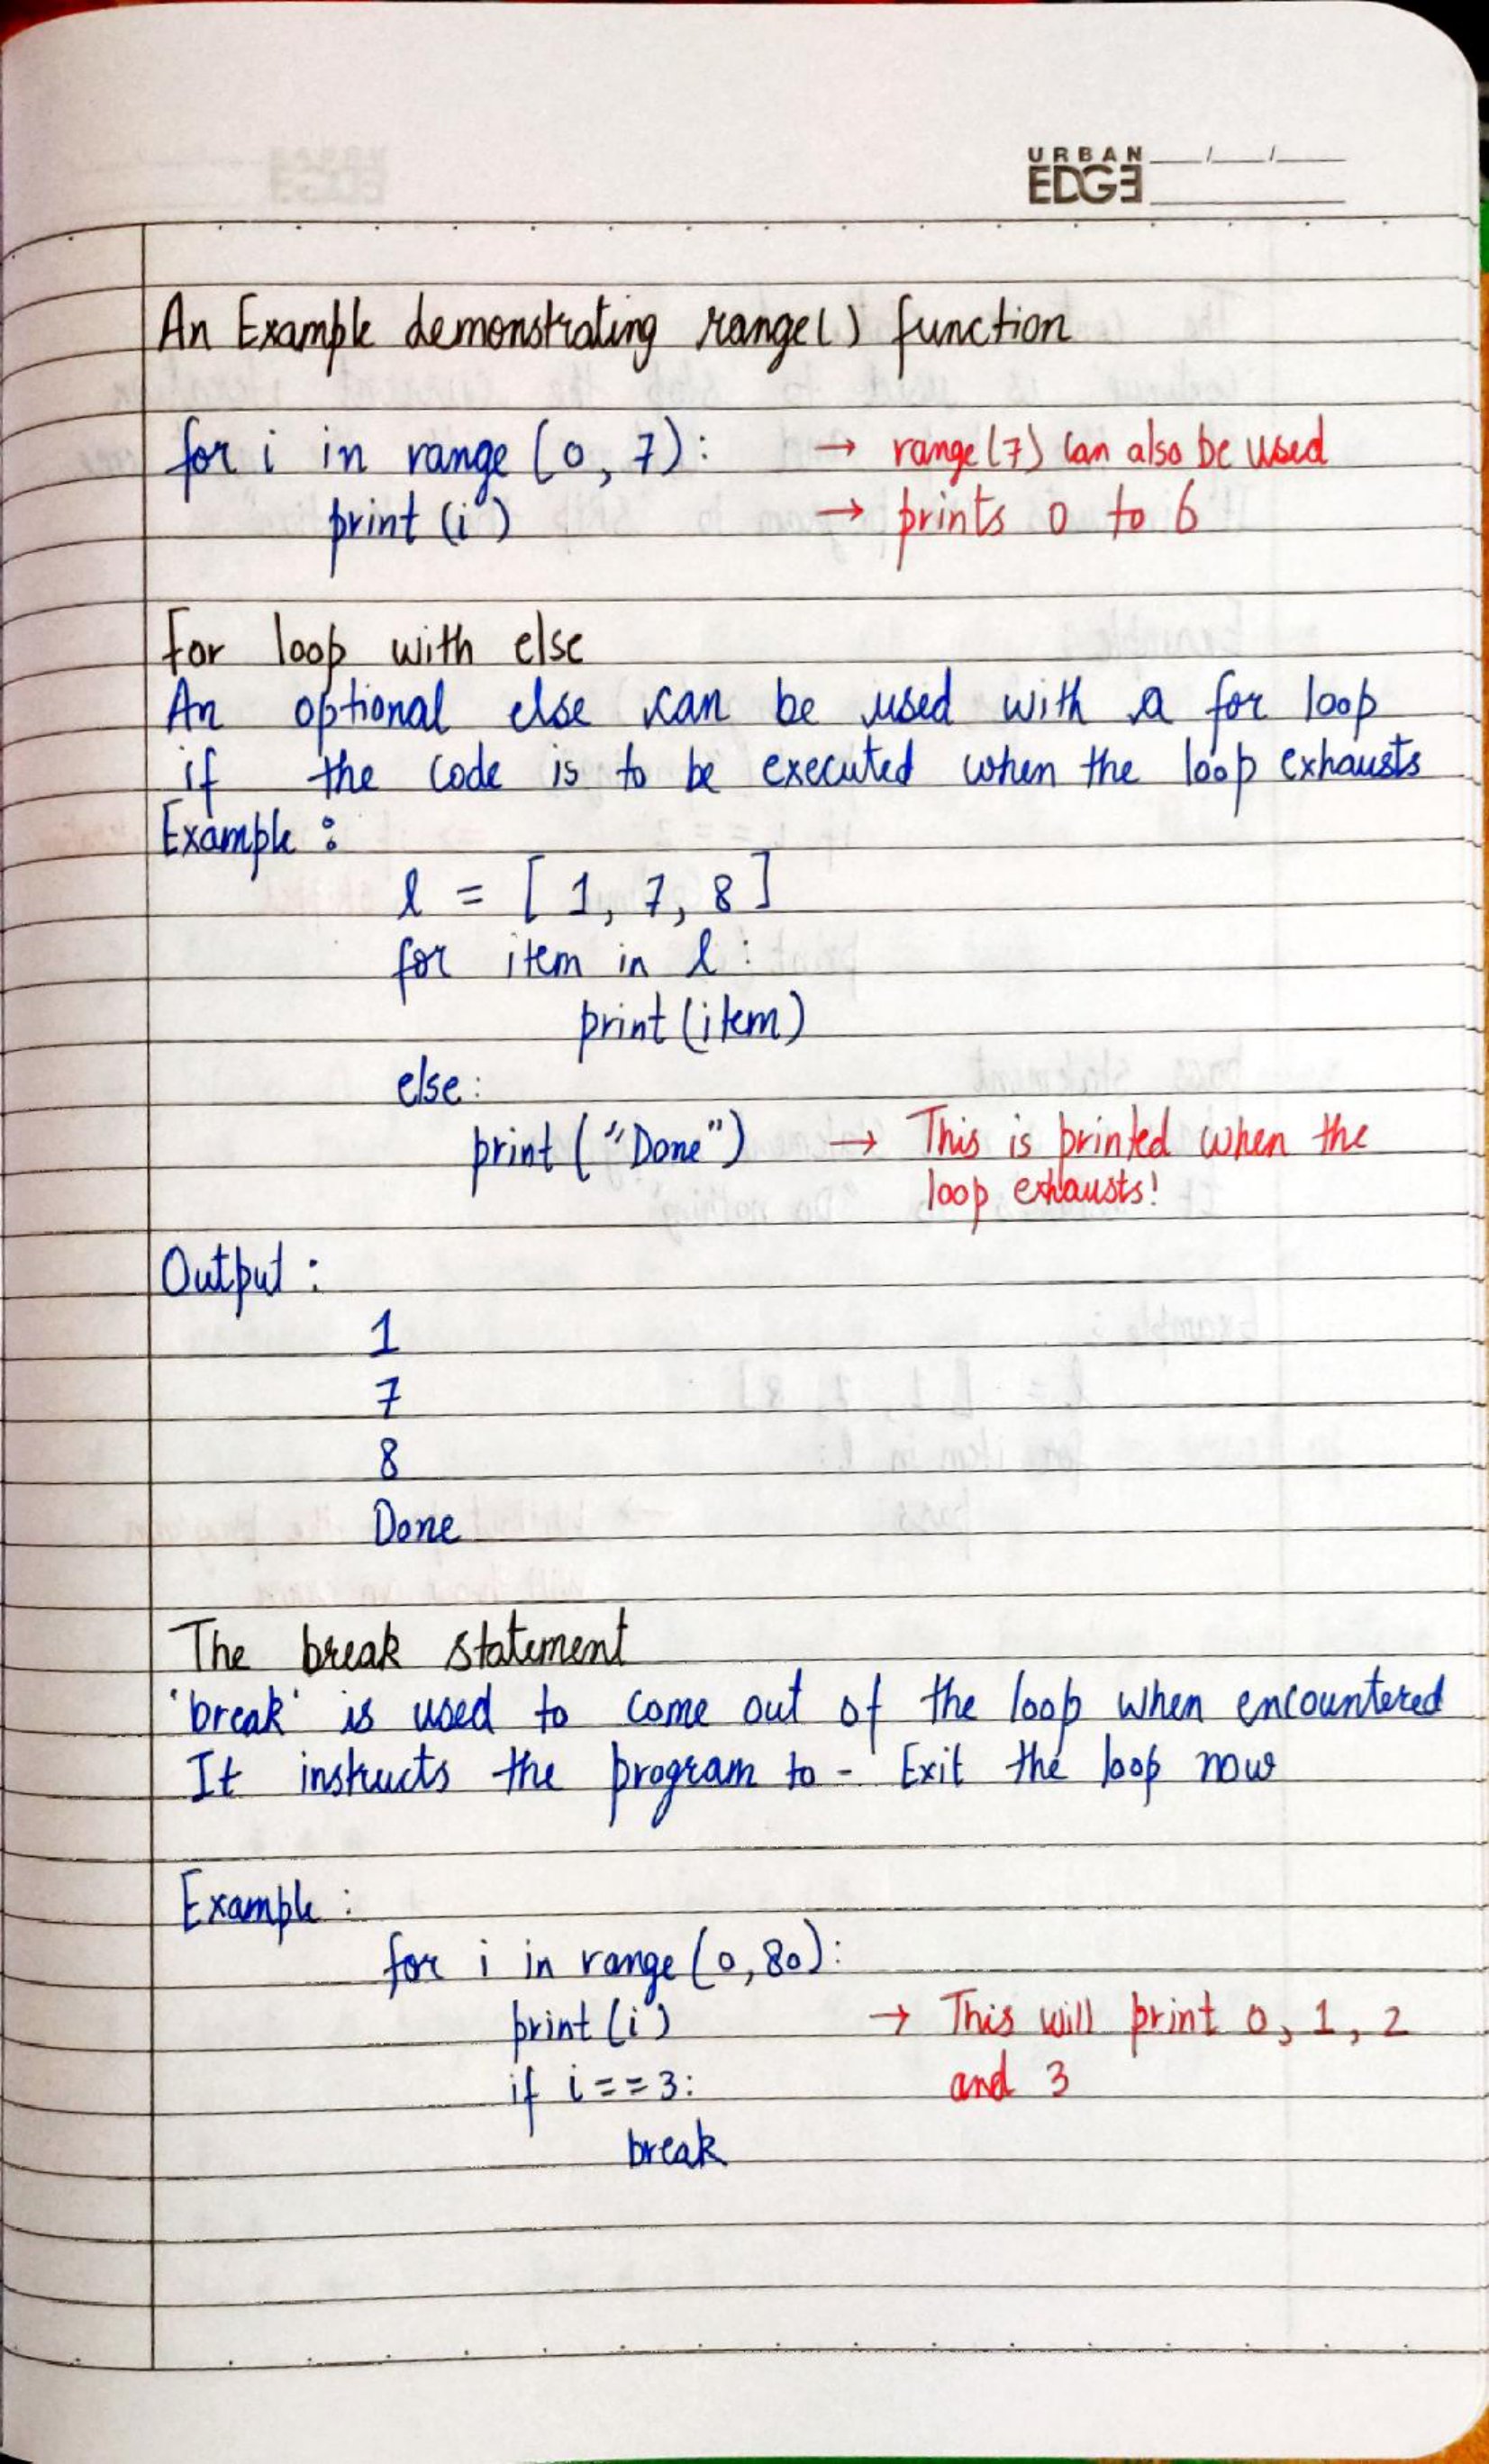 URBAN
EDGE
An Example demonstrating range() function
for i in range (0, 7): → range(7) can also be used
print (i) → prints 0 to 6
For loop with else
An optional else can be used with a for loop
if the code is to be executed when the loop exhausts
Example :
l = [ 1, 7, 8 ]
for item in l :
print (item)
else :
print ("Done") → This is printed when the
loop exhausts!
Output :
1
7
8
Done
The break statement
'break' is used to come out of the loop when encountered
It instructs the program to - Exit the loop now
Example :
for i in range (0, 80):
print (i) → This will print 0, 1, 2
if i==3: and 3
break